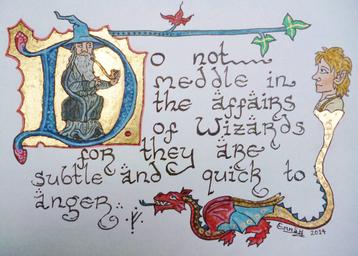 Do not
meddle in
the affairs
of Wizards
for they are
subtle and quick to
anger.
Ennah 2014